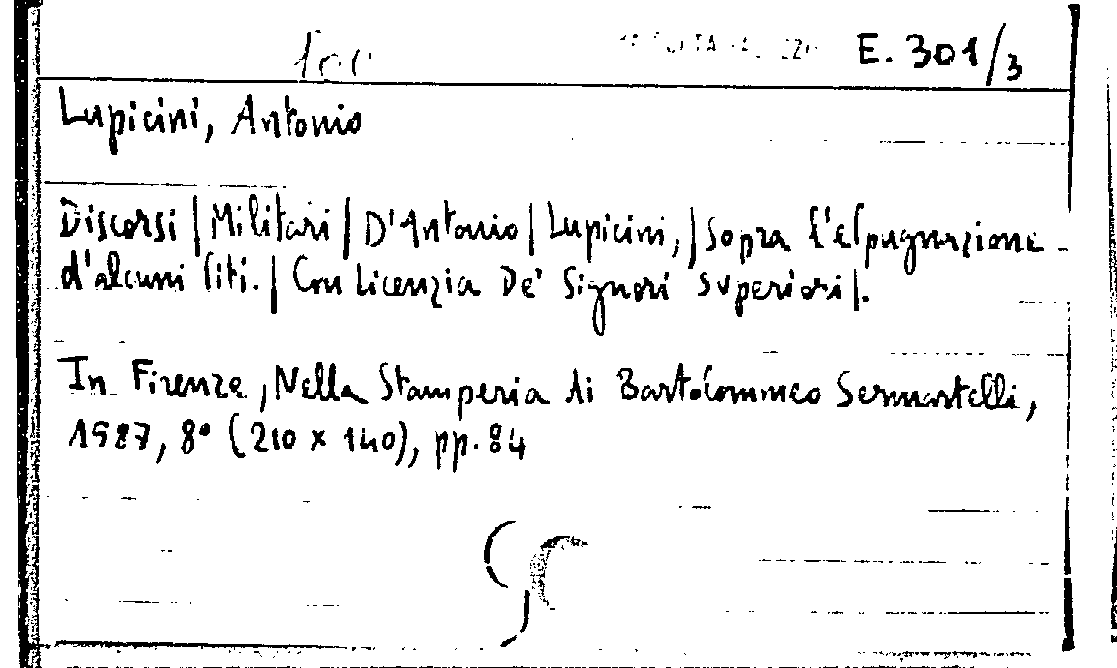 E. 301/3
Lupicini, Antonio
Discorsi | Militari | D'Antonio | Lupicini, | sopra l'eſpugnazione
d'alcuni ſiti. | Con Licenzia De' Signori Superiori |.
In Firenze, Nella Stamperia di Bartolommeo Sermartelli,
1587, 8° (210 x 140), pp. 84